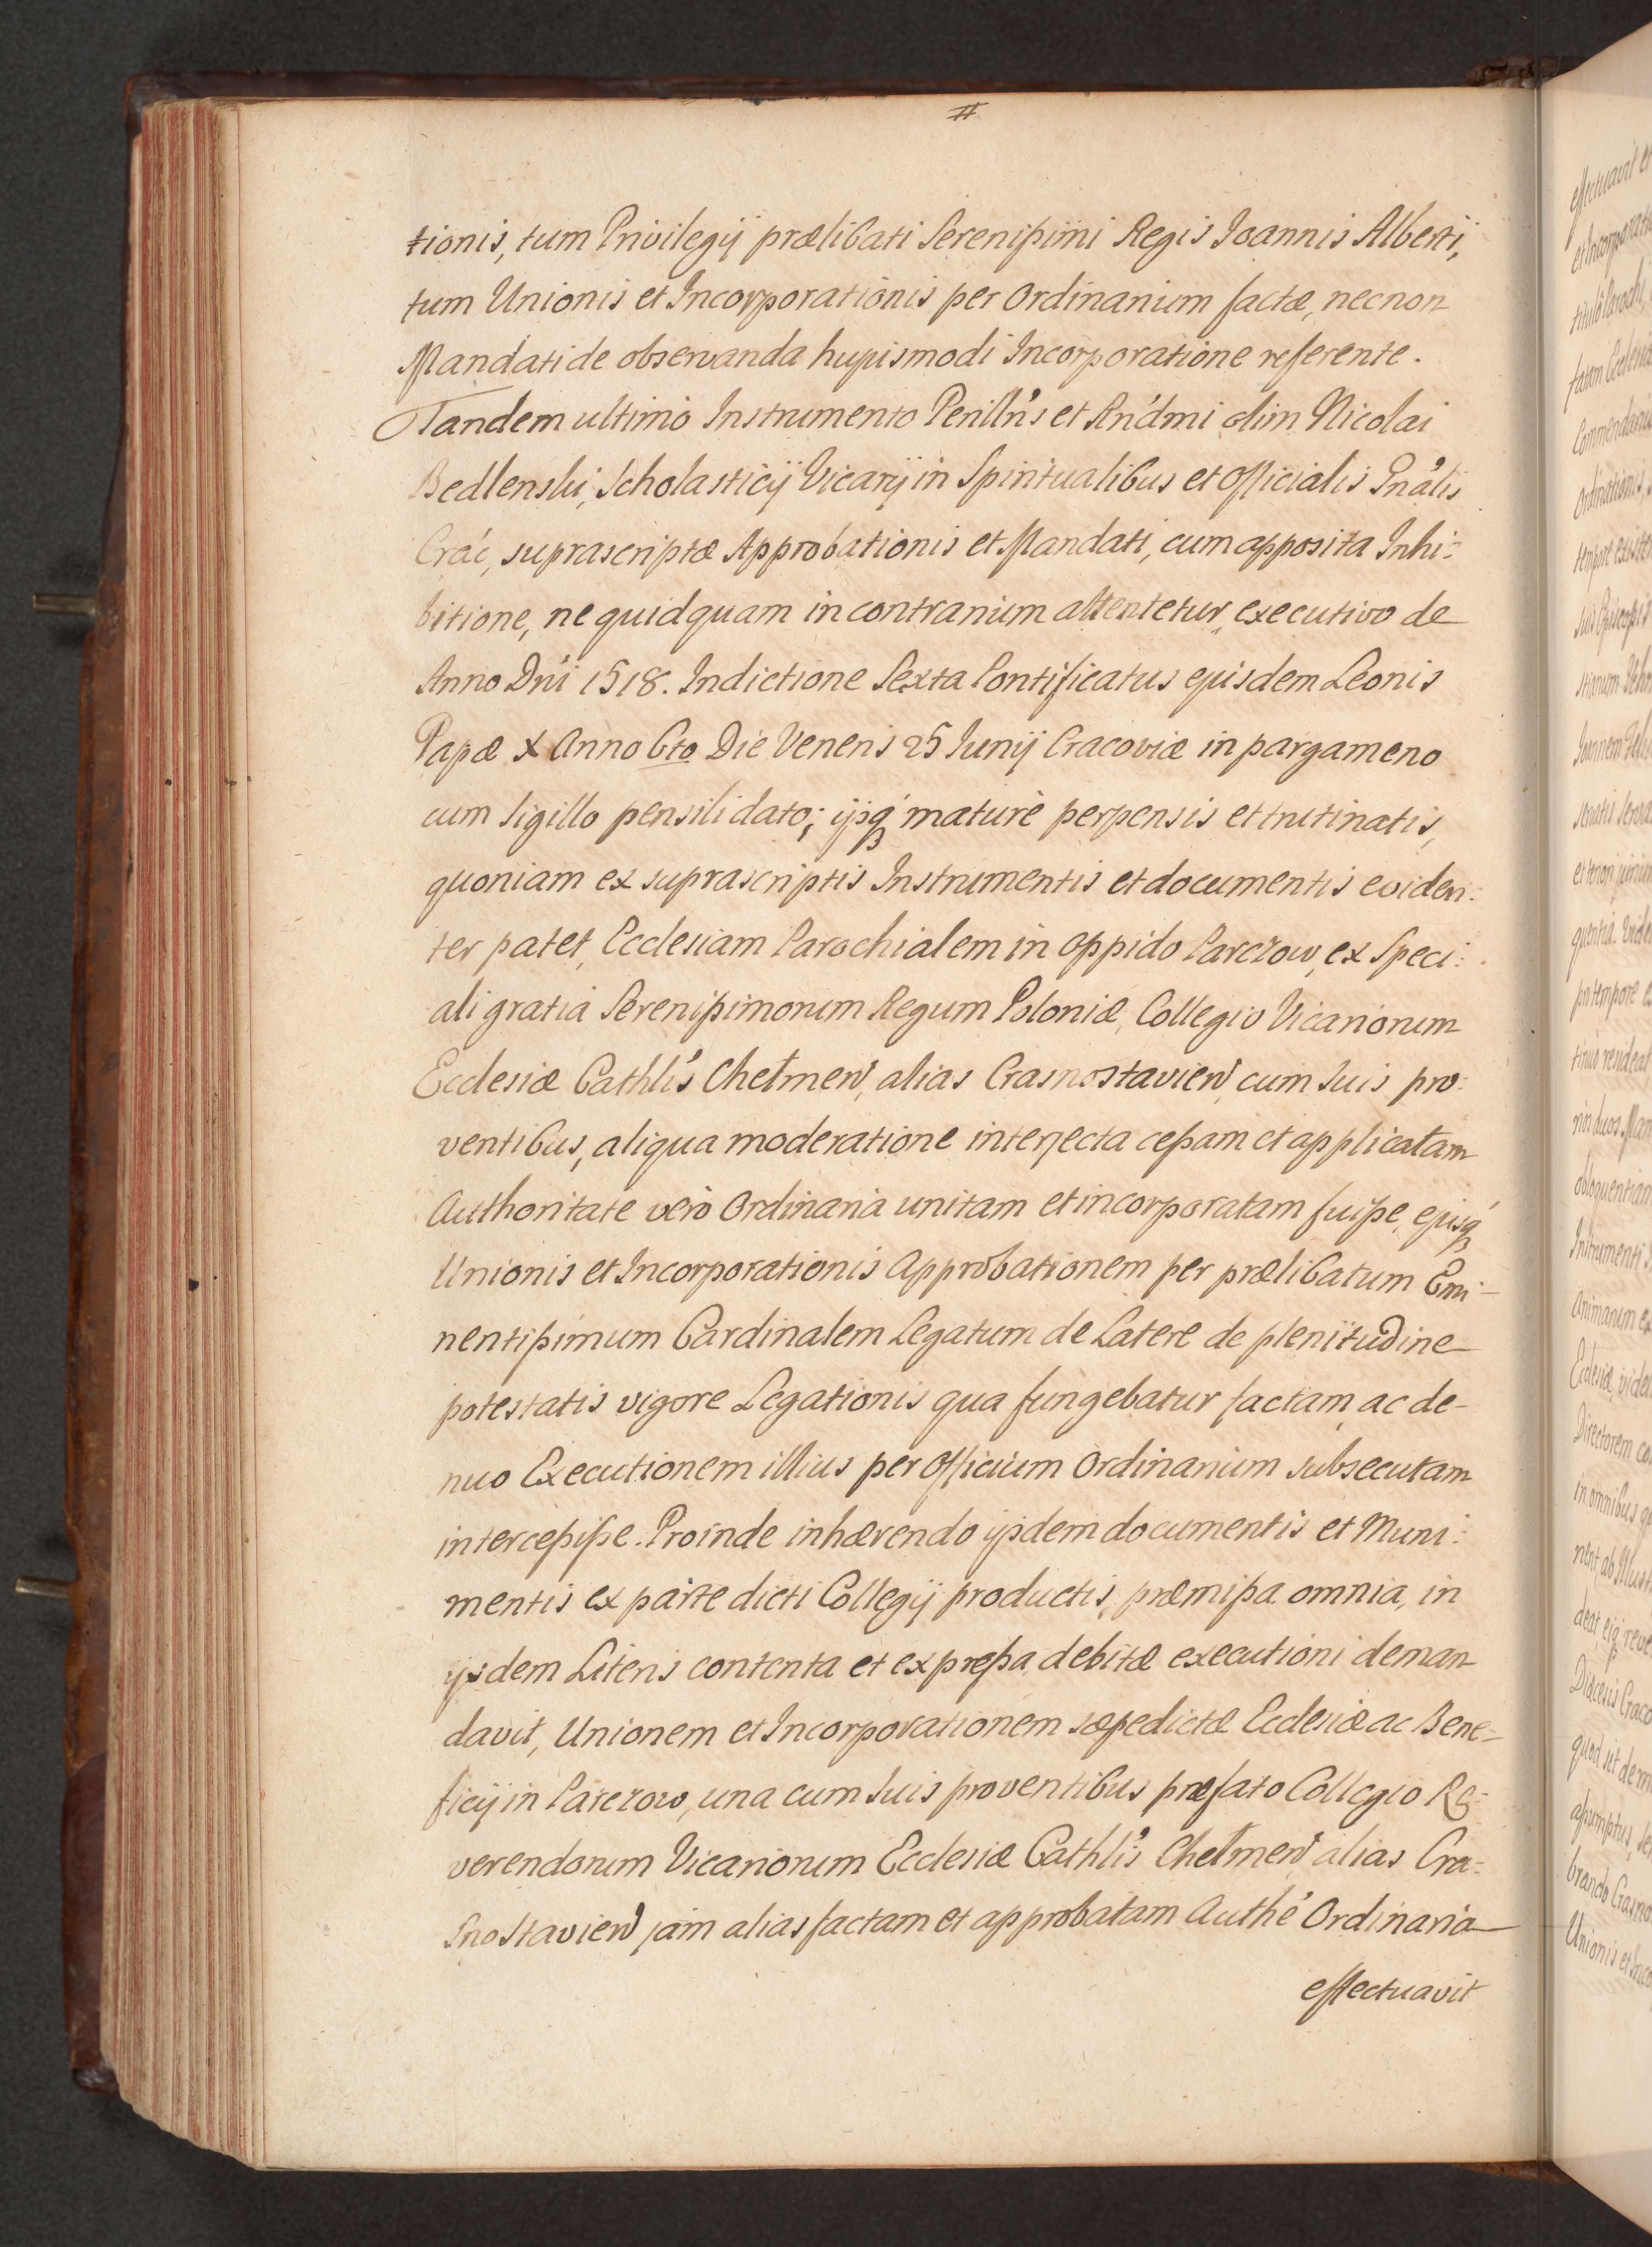 #
tionis, tum Privilegÿ prælibati Serenißimi Regis Joannis Alberti,
tum Unionis et Incorporationis per Ordinarium factæ, necnon
Mandati de observanda hujusmodi Incorporatione referente.
Tandem ultimò Instrumento Perilln's et Rn'dmi olim Nicolai
Bedlenski, Scholasticÿ Vicarÿ in Spiritualibus et Officialis Gn'alis
Crac', suprascriptæ Approbationis et Mandati, cum apposita Inhi:
bitione, ne quidquam in contrarium attentetur, executivo de
Anno Dn'i 1518. Indictione Sexta Pontificatus ejusdem Leonis
Papæ X Anno 6to Die Veneris 25 Junÿ Cracoviæ in pargameno
cum Sigillo pensili dato; ijsq' maturè perpensis et trutinatis,
quoniam ex suprascriptis Instrumentis et documentis eviden:
ter patet, Ecclesiam Parochialem in Oppido Parczow, ex Speci:
ali gratia Serenißimorum Regum Poloniæ, Collegio Vicariorum
Ecclesiæ Cathli's Chełmen', alias Crasnostavien', cum suis pro:
ventibus, aliqua moderatione interjecta ceßam et applicatam
Authoritate verò Ordinaria unitam et incorporatam fuiße, ejusq'
Unionis et Incorporationis Approbationem per prælibatum Emi-
nentißimum Cardinalem Legatum de Latere de plenitudine
potestatis vigore Legationis qua fungebatur factam, ac de-
nuo Executionem illius per Officium Ordinarium subsecutam
interceßiße. Proinde inhærendo ijsdem documentis et Muni:
mentis ex parte dicti Collegÿ productis, præmißa omnia, in
ijsdem Literis contenta et expreßa, debitæ executioni deman
davit, Unionem et Incorporationem sæpedictæ Ecclesiæ ac Bene-
ficÿ in Parczow, una cum suis proventibus præfato Collegio Re-
verendorum Vicariorum Ecclesiæ Cathli's Chełmen' alias Cra:
snostavien' jam alias factam et approbatam Authe' Ordinaria
effectuavit